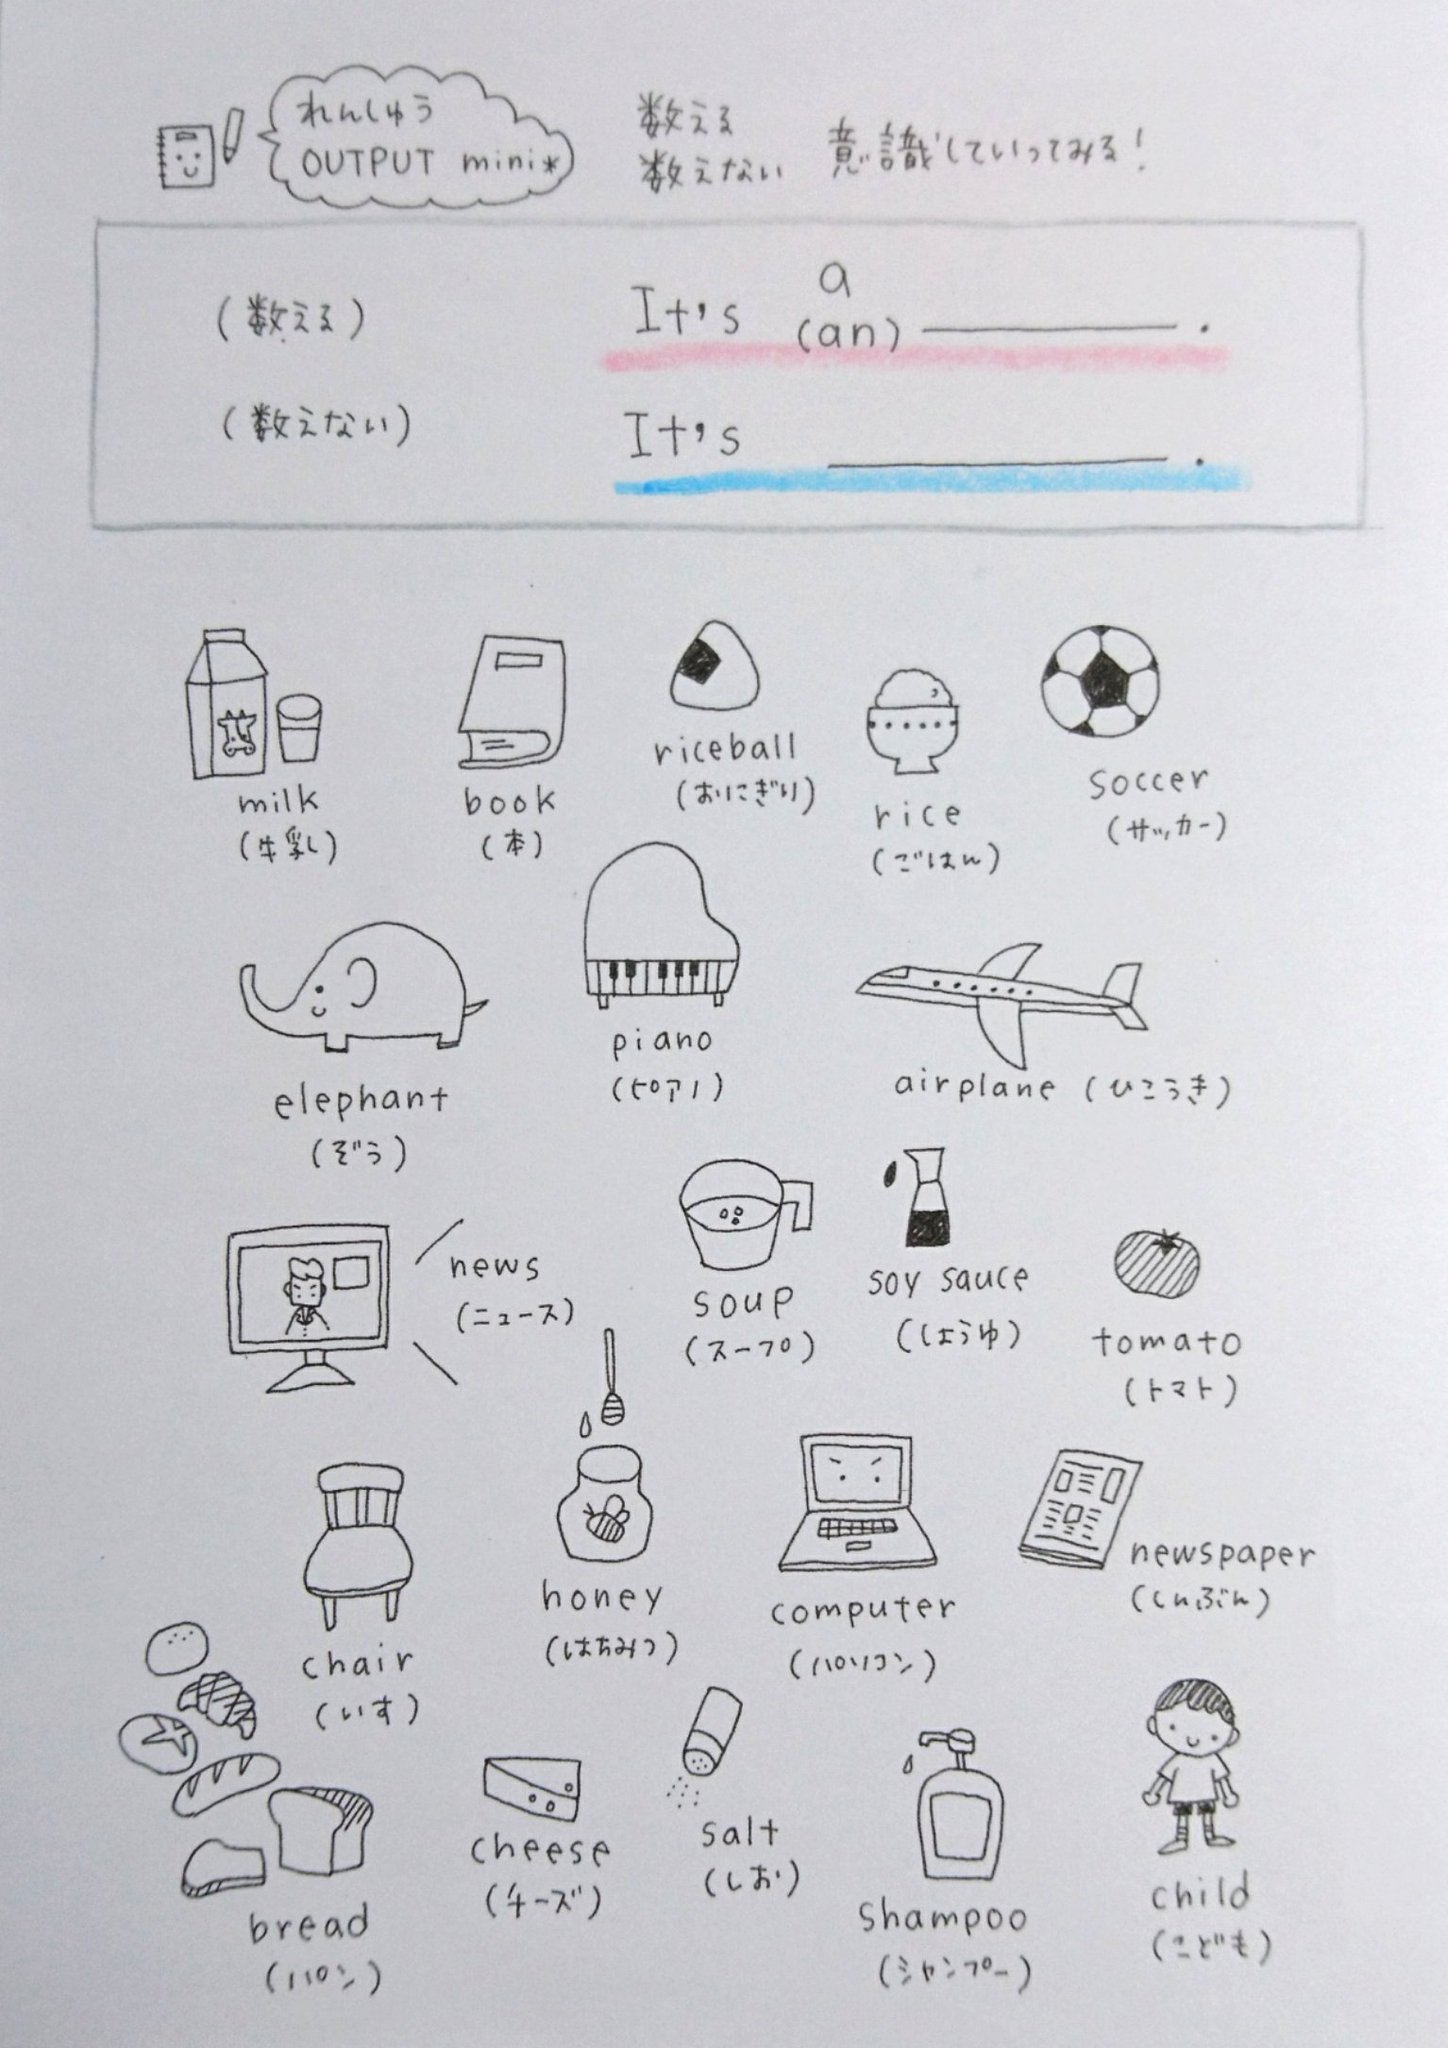 れんしゅう
OUTPUT mini*
数える
数えない
意識していってみる!
(数える)
It's a (an) ______ .
(数えない)
It's ______ .
milk
(牛乳)
book
(本)
riceball
(おにぎり)
rice
(ごはん)
soccer
(サッカー)
elephant
(ぞう)
piano
(ピアノ)
airplane (ひこうき)
news
(ニュース)
soup
(スープ)
soy sauce
(しょうゆ)
tomato
(トマト)
chair
(いす)
honey
(はちみつ)
computer
(パソコン)
newspaper
(しんぶん)
bread
(パン)
cheese
(チーズ)
salt
(しお)
shampoo
(シャンプー)
child
(こども)